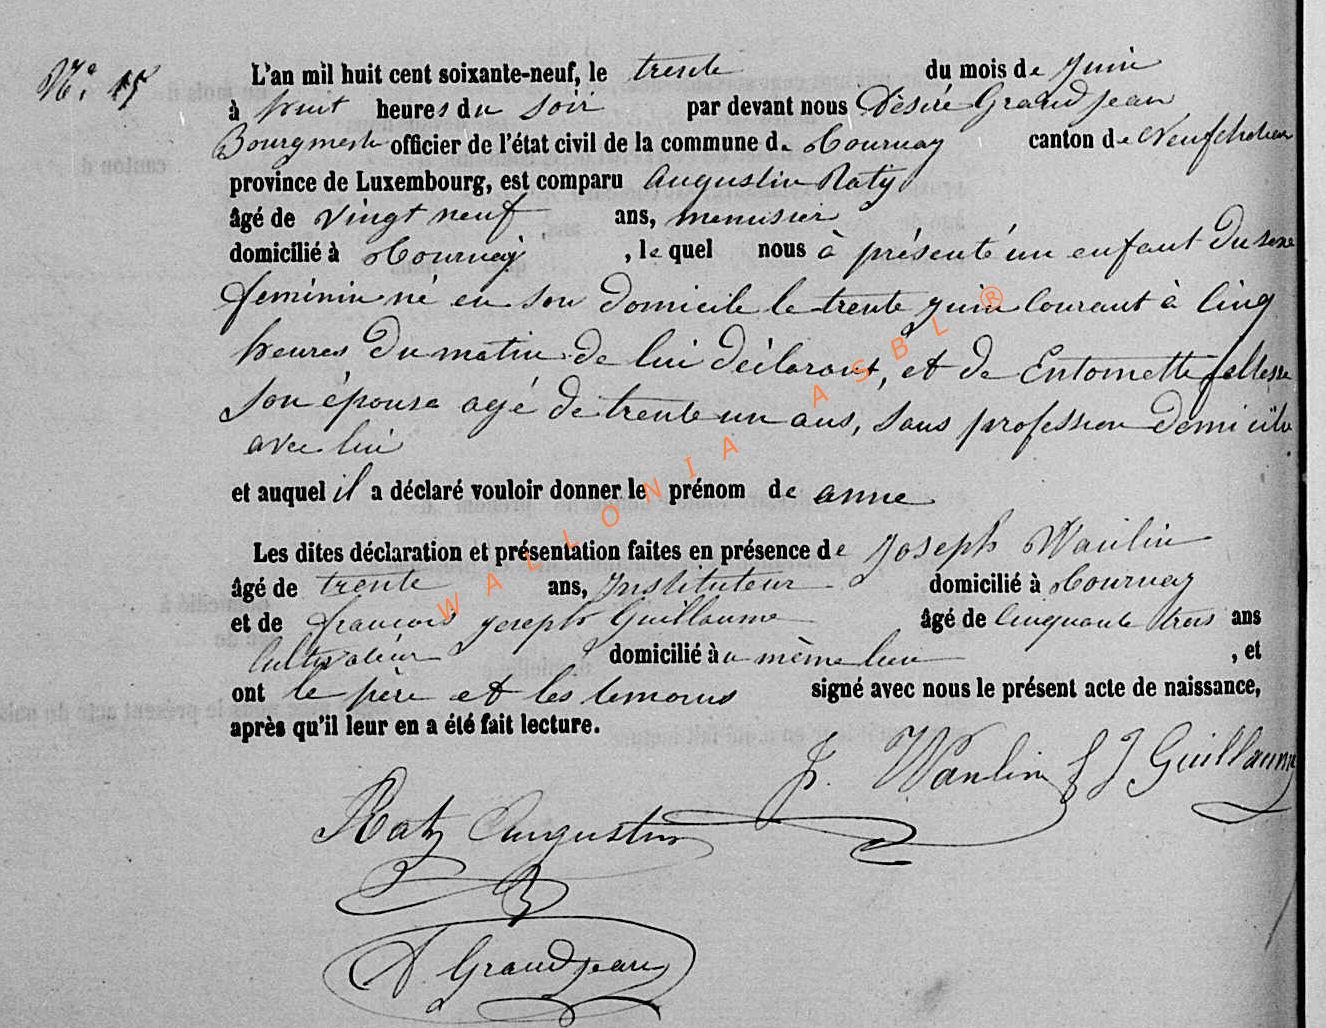 N°. 15
L'an mil huit cent soixante-neuf, le trente du mois de Juin
à huit heures du soir par devant nous Désiré Grandjean
Bourgmestre officier de l'état civil de la commune de Tournay canton de Neufchateau
province de Luxembourg, est comparu Augustin Raty
âgé de vingt neuf ans, menusier
domicilié à Tournay , lequel nous à présenté un enfant du sexe
feminin né en son domicile le trente juin courant à cinq
heures du matin de lui déclarant, et de Entoinette
son épouse agé de trente un ans, sans profession
avec lui
et auquel il a déclaré vouloir donner le prénom de anne
Les dites déclaration et présentation faites en présence de Joseph Wanlin
âgé de trente ans, Instituteur domicilié à Tournay
et de francois joseph Guillaume âgé de cinquante trois ans
Cultivateur domicilié au même lieu , et
ont le père et les temoins signé avec nous le présent acte de naissance,
après qu'il leur en a été fait lecture.
J. Wanlin f J Guillaume
Raty Augustin
D. Grandjean
WALLONIA ASBL ®